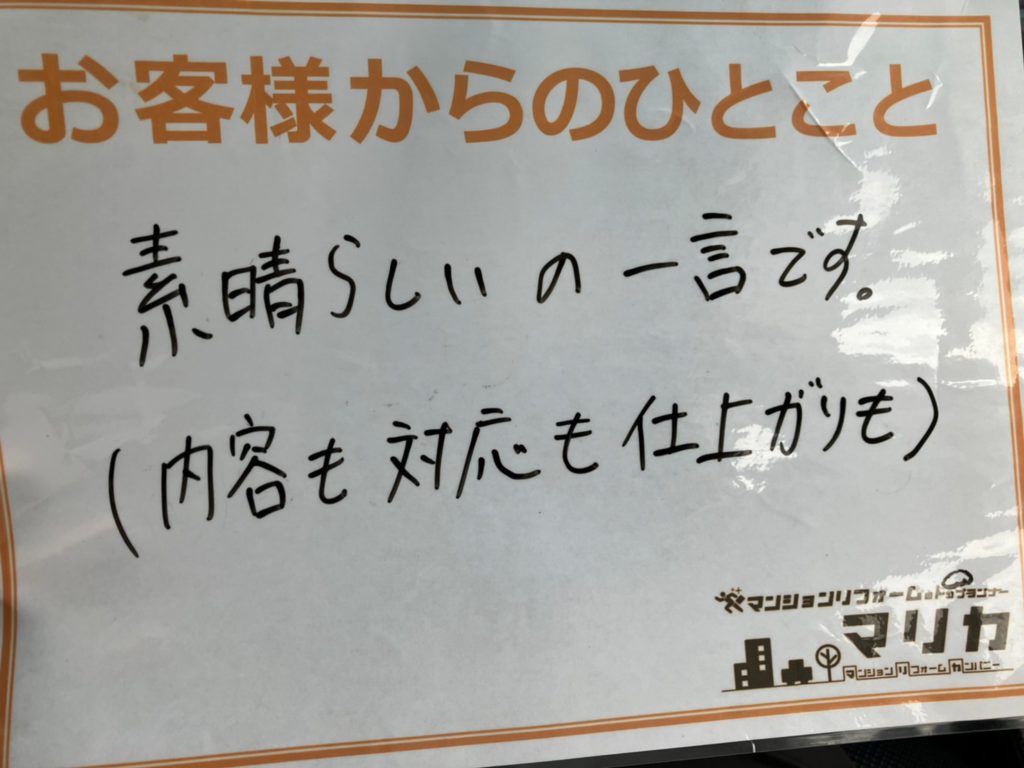 お客様からのひとこと
素晴らしいの一言です。
(内容も対応も仕上がりも)
マンションリフォームのトップランナー
マリカ
マンションリフォームカンパニー